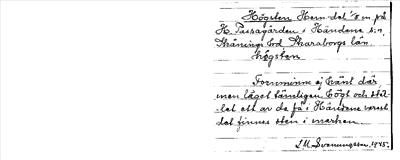 Högsten Hem.del. 8 m. på
H. Passagården i Händene s:n,
Skånings hd Skaraborgs län.
högsten
Fornminne ej känt där,
men läget tämligen högt och stäl-
let ett av de få i Händene varest
det finnes sten i marken.
Svenungsson 1945.